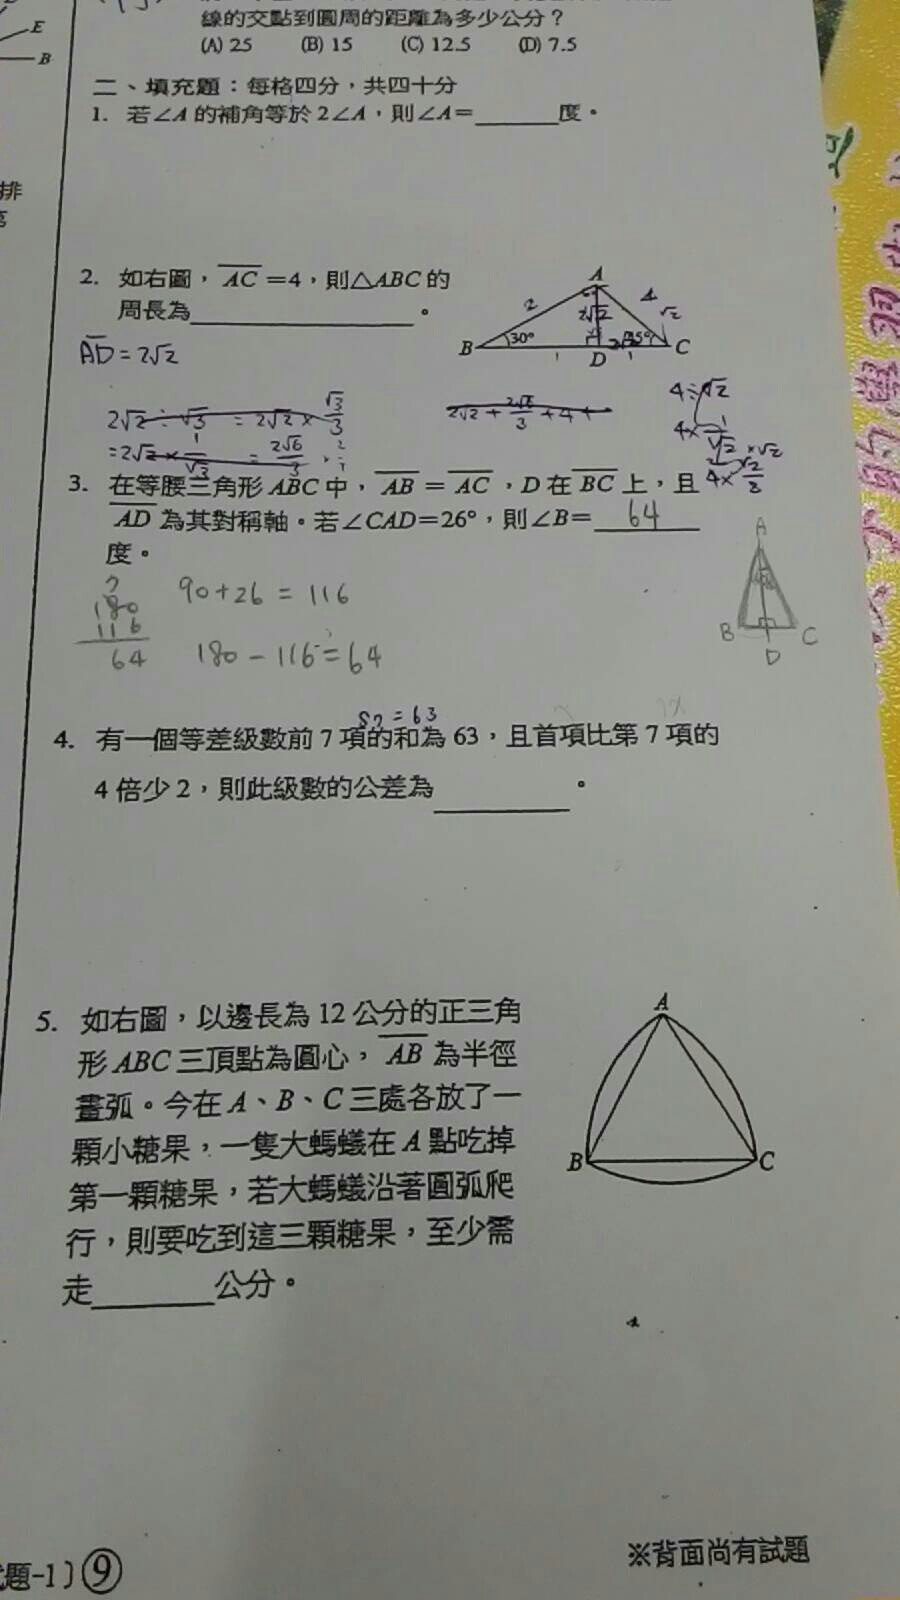 線的交點到圓周的距離為多少公分？
(A) 25 (B) 15 (C) 12.5 (D) 7.5
二、填充題：每格四分，共四十分
1. 若∠A 的補角等於 2∠A，則∠A=______度。
2. 如右圖，AC=4，則△ABC 的
周長為______。
A
2
4
2√2
√2
B
30°
D
C
1
1
AD = 2√2
2√2 ÷ √3 = 2√2 × √3/3
= 2√2 × 1/√3 = 2√6/3
2√2 + 2√6/3 + 4 +
4÷√2
4× 1/√2 ×√2
3. 在等腰三角形 ABC 中，AB=AC，D 在 BC 上，且
AD 為其對稱軸。若∠CAD=26°，則∠B= 64
度。
180
116
64
90+26 = 116
180 - 116 = 64
A
B
C
D
S7 = 63
4. 有一個等差級數前 7 項的和為 63，且首項比第 7 項的
4 倍少 2，則此級數的公差為______。
5. 如右圖，以邊長為 12 公分的正三角
形 ABC 三頂點為圓心，AB 為半徑
畫弧。今在 A、B、C 三處各放了一
顆小糖果，一隻大螞蟻在 A 點吃掉
第一顆糖果，若大螞蟻沿著圓弧爬
行，則要吃到這三顆糖果，至少需
走______公分。
A
B
C
※背面尚有試題
題-1）⑨
E
B
排